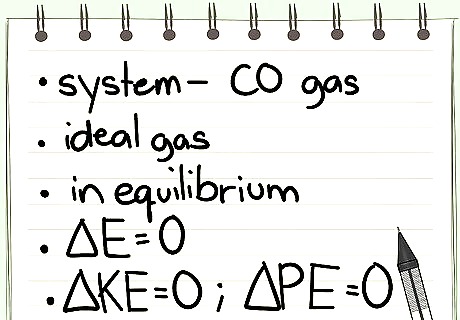 • system – CO gas
• ideal gas
• in equilibrium
• ΔE = 0
• ΔKE = 0 ; ΔPE = 0